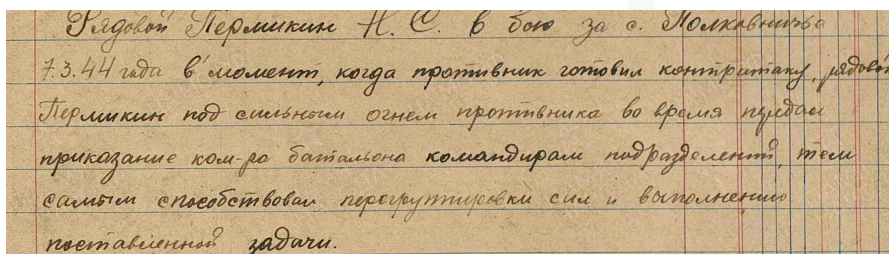 Рядовой Пермикин Н. С. в бою за с. Полковничье
7.3.44 года в момент, когда противник готовил контратаку, рядовой
Пермикин под сильным огнем противника во время передал
приказание ком-ра батальона командирам подразделений, тем
самым способствовал перегруппировки сил и выполнению
поставленной задачи.